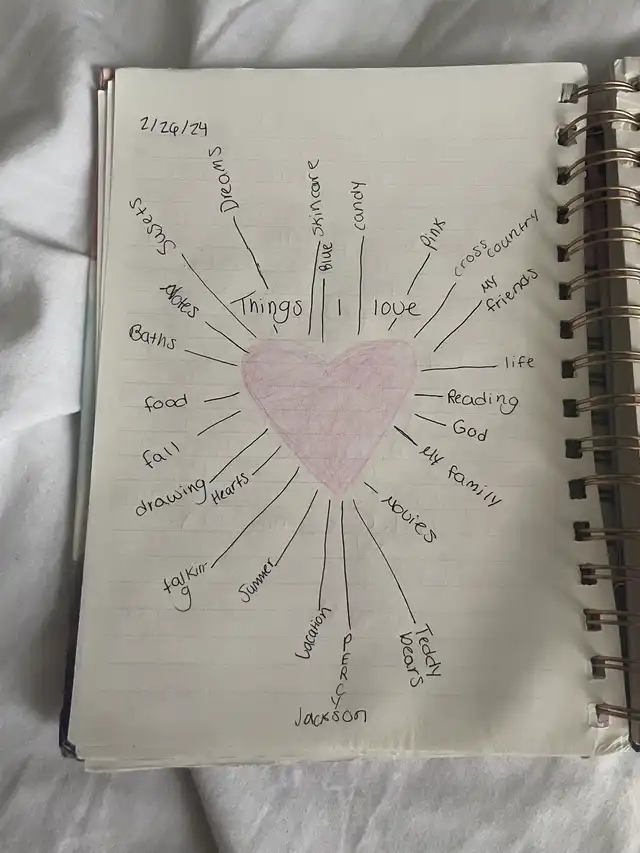 2/26/24
Things I love
Dreams
Skincare
Blue
candy
Pink
cross country
My
friends
life
Reading
God
My family
Movies
Teddy
bears
PERCY
Jackson
Vacation
Summer
talkin-
g
Hearts
drawing
fall
food
Baths
Notes
Susets